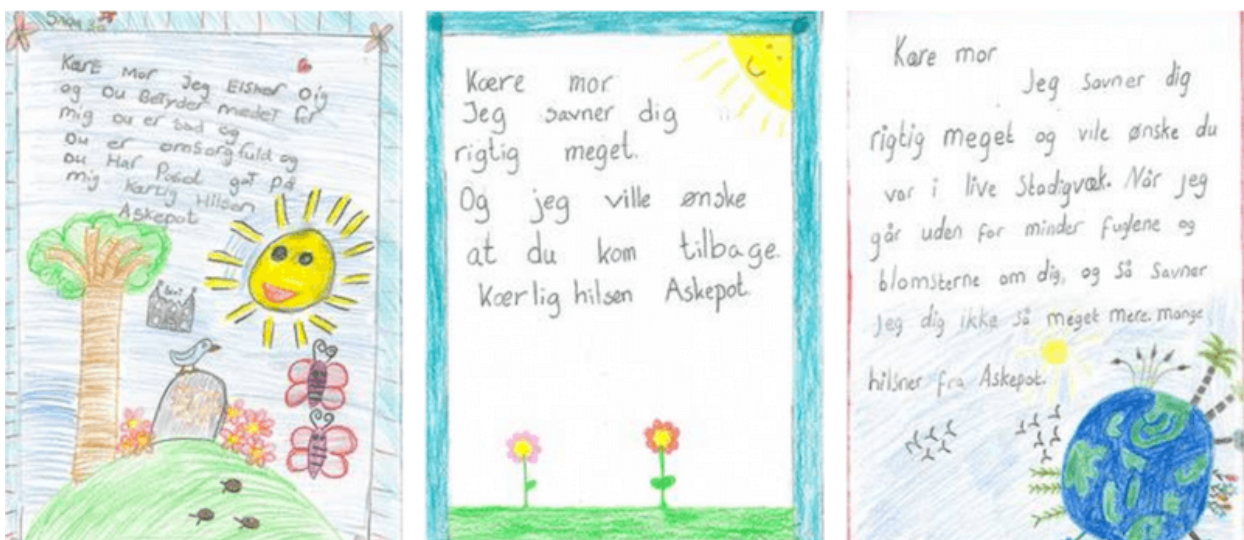 Kære mor Jeg Elsker Dig
og Du Betyder medet for
mig Du er sød og
Du er omsorgfuld og
Du Har Passet got på
mig Kærlig Hilsen
Askepot
Kære mor
Jeg savner dig
rigtig meget.
Og jeg ville ønske
at du kom tilbage.
Kærlig hilsen Askepot.
Kære mor
Jeg savner dig
rigtig meget og vile ønske du
var i live Stadigvæk. Når jeg
går uden for minder fuglene og
blomsterne om dig, og så savner
jeg dig ikke så meget mere. mange
hilsner fra Askepot.